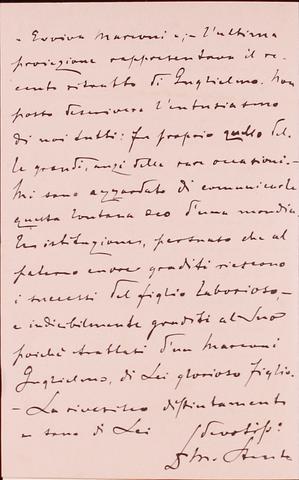 "Evviva Marconi"; – l'ultima
proiezione rappresentava il re-
cente ritratto di Guglielmo. Non
posso descrivere l'entusiasmo
di noi tutti: Fu proprio quello del-
le grandi, anzi delle rare occasioni. –
Mi sono azzardato di comunicarle
questa lontana eco d'una mondia-
le istituzione, persuaso che al
paterno cuore graditi riescono
i successi del figlio laborioso, –
e indicibilmente graditi al Suo
poichè trattasi d'un Marconi
Guglielmo, di Lei glorioso figlio.
– La riverisco distintamente
e sono di Lei
devotiss: